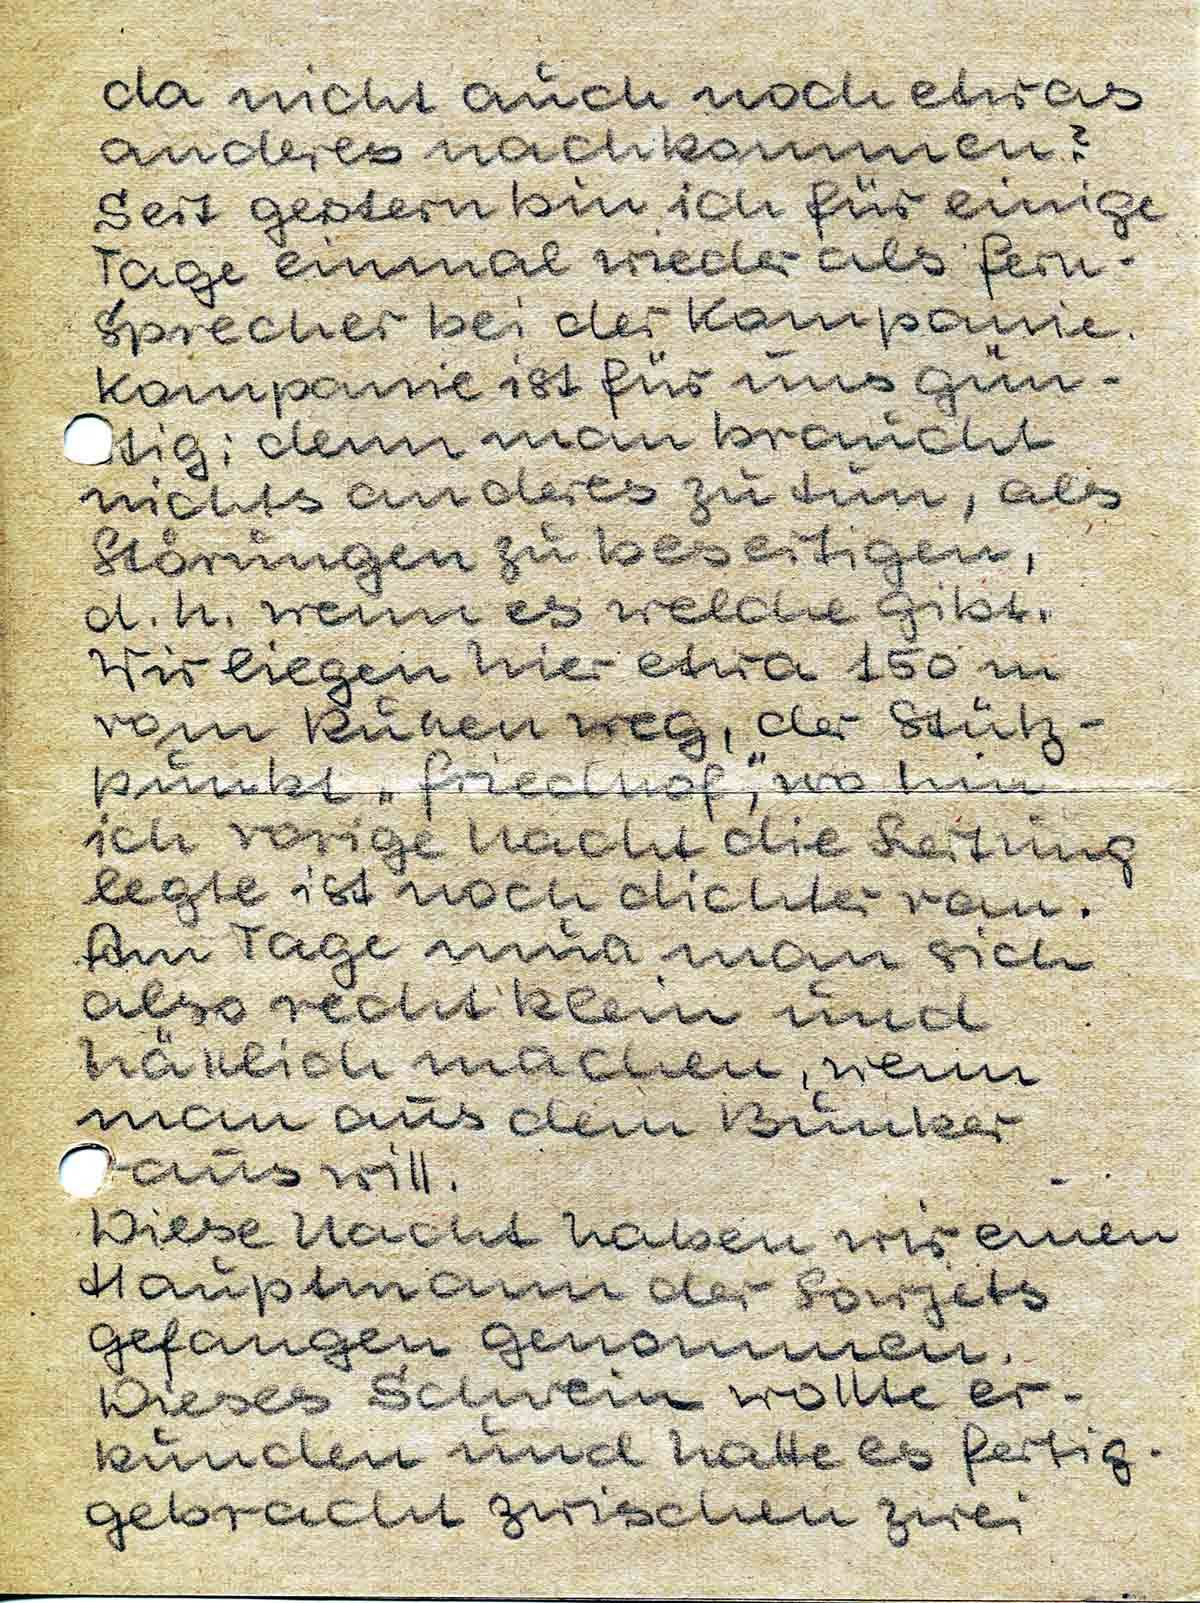 da nicht auch noch etwas
anderes nachkommen?
Seit gestern bin ich für einige
Tage einmal wieder als Fern-
sprecher bei der Kompanie.
Kompanie ist für uns gün-
stig; denn man braucht
nichts anderes zu tun, als
Störungen zu beseitigen,
d.h. wenn es welche gibt.
Wir liegen hier etwa 150 m
vom Rußen weg, der Stütz-
punkt „Friedhof“, wo hin
ich vorige Nacht die Leitung
legte ist noch dichter ran.
Am Tage muß man sich
also recht klein und
häßlich machen, wenn
man aus dem Bunker
raus will.
Diese Nacht haben wir einen
Hauptmann der Sowjets
gefangen genommen.
Dieses Schwein wollte er-
kunden und hatte es fertig-
gebracht zwischen zwei